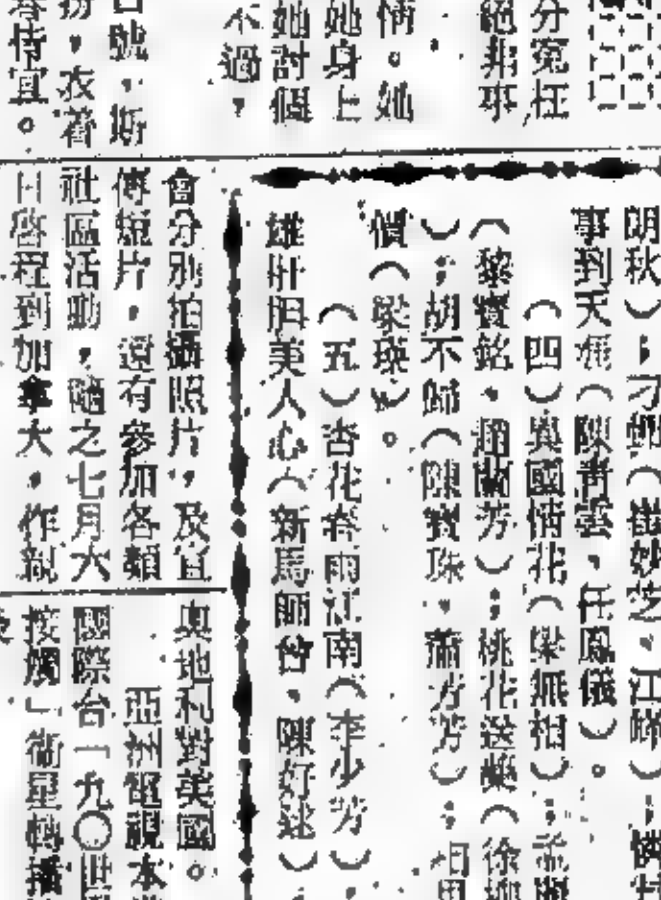 分冤枉
絕非事
情。她
她身上
她討個
不過，
口號，斯
扮，衣着
朗秋）；刁蠻（崔妙芝、江
事到天（陳青雲、任鳳儀）。
（四）異國情花（梁無相）；孟麗
（黎寶銘、趙蘭芳）；桃花送藥（徐柳
）；胡不歸（陳寶珠、蕭芳芳）；相思
償（梁瑛）。
（五）杏花春雨江南（李少芳）；
雄壯胆美人心（新馬師曾、陳好逑）
會分別拍攝照片，及宣
傳短片，還有參加各類
社區活動，隨之七月六
日啓程到加拿大，作親
奧地利對美國。
亞洲電視本
國際台一九九〇世
接觸」衞星轉播